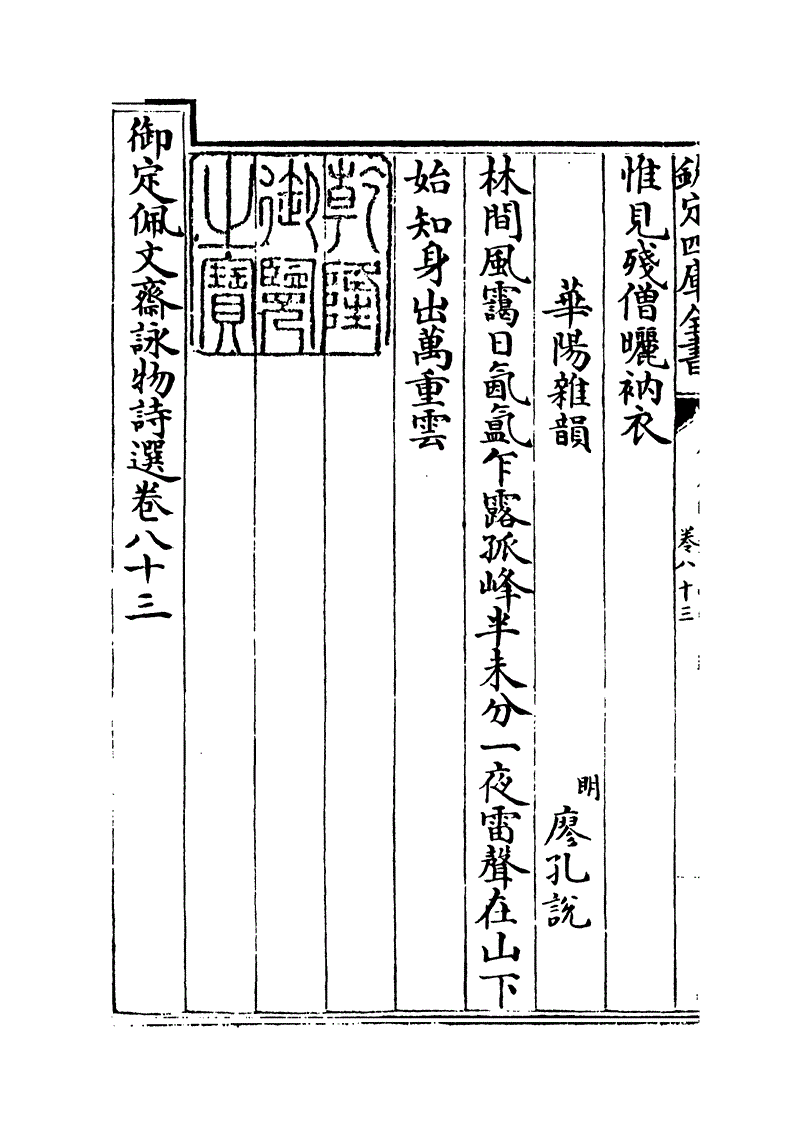 欽定四庫全書
卷八十三
惟見殘僧曬衲衣
華陽雜韻
明
廖孔說
林間風靄日氤氳乍露孤峰半未分一夜雷聲在山下
始知身出萬重雲
乾隆御覽之寶
御定佩文齋詠物詩選卷八十三